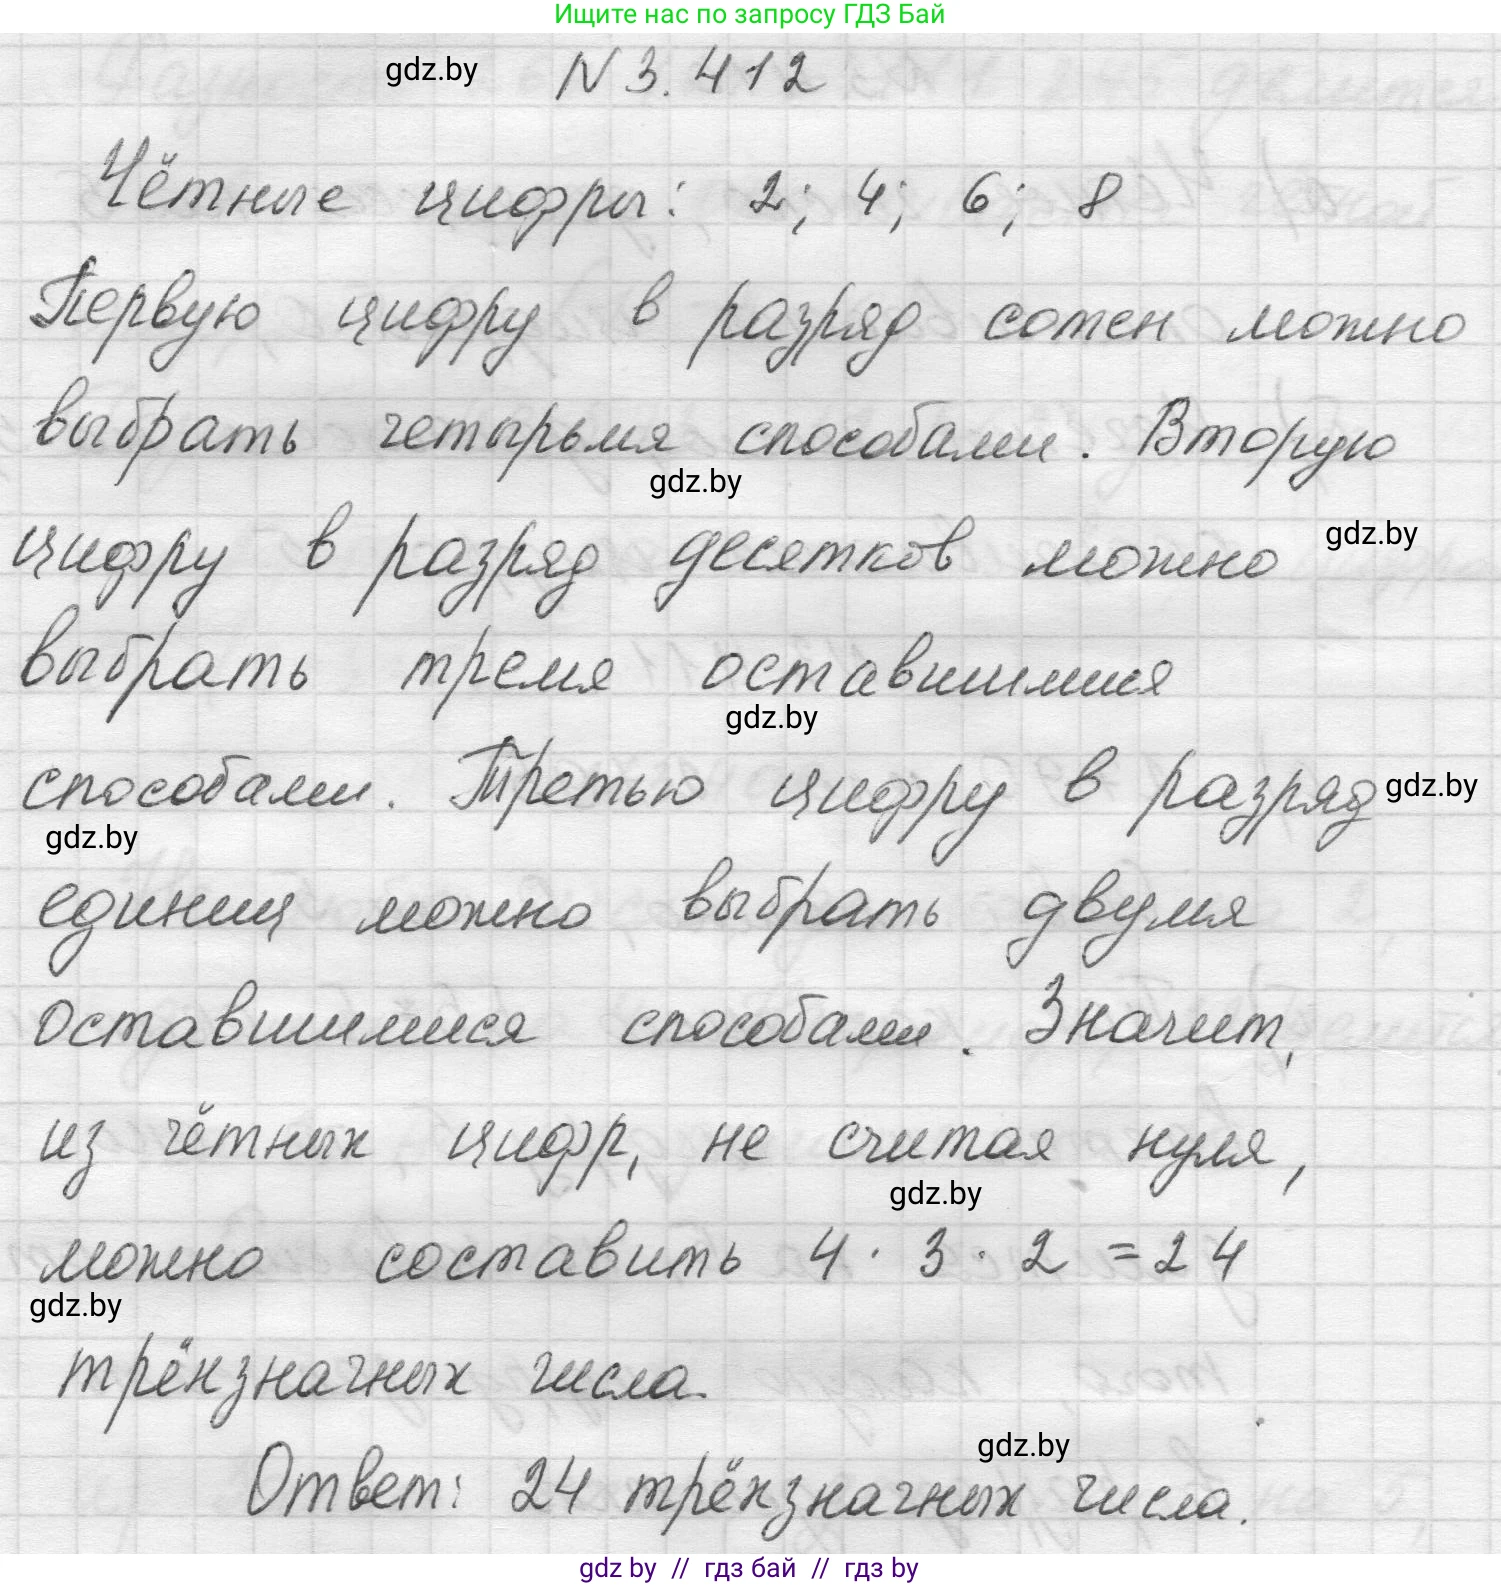 Ищите нас по запросу ГДЗ Бай
gdz.by
N 3. 412
Чётные цифры: 2; 4; 6; 8
Первую цифру в разряд сотен можно
выбрать четырьмя способами. Вторую
gdz.by
gdz.by
цифру в разряд десятков можно
выбрать тремя оставшимися
gdz.by
способами. Третью цифру в разряд
gdz.by
gdz.by
единиц можно выбрать двумя
оставшимися способами. Значит,
из чётных цифр, не считая нуля,
gdz.by
можно составить 4 · 3 · 2 = 24
gdz.by
трёхзначных числа.
gdz.by
Ответ: 24 трёхзначных числа.
gdz by // гдз бай // гдз by